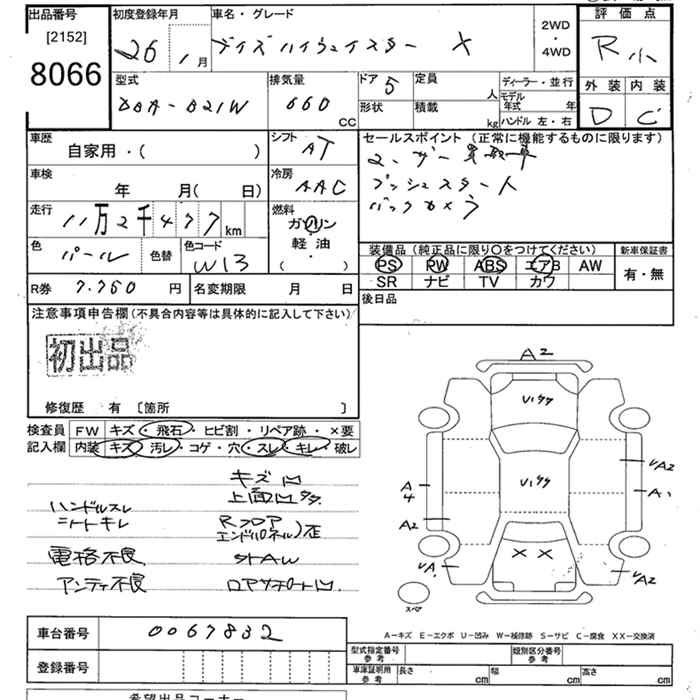 出品番号
[2152]
8066
初度登録年月
26 1月
車名・グレード
デイズハイウェイスター X
2WD
・
4WD
評価点
R
外装 内装
D C
型式
DBA-B21W
排気量
660 CC
ドア 5
形状
定員 人
積載 kg
ディーラー・並行
モデル年式 年
ハンドル 左・右
車歴
自家用・( )
シフト AT
セールスポイント (正常に機能するものに限ります)
ユーザー買取車
プッシュスタート
バックカメラ
車検
年 月( 日)
冷房 AAC
走行 11万2千477km
燃料
ガソリン
軽油
( ・ )
色 パール
色替
色コード W13
装備品 (純正品に限り○をつけてください)
PS PW ABS エアB AW
SR ナビ TV カワ
新車保証書
有・無
R券 7.750 円
名変期限 月 日
後日品
注意事項申告欄(不具合内容等は具体的に記入して下さい)
初出品
修復歴 有 [箇所 ]
検査員 FW キズ・飛石・ヒビ割・リペア跡・×要
記入欄 内装 キズ・汚レ・コゲ・穴・スレ・キレ・破レ
キズ凹
上面凹多々
ハンドルスレ
シートキレ
Rフロア
エンドパネル)歪
電格不良
STAW
アンテナ不良
ロアサポート凹
A2
U1タタ
U1タタ
UA2
A1
A4
A2
× ×
UA1
UA2
スペア
A-キズ E-エクボ U-凹み W-補修跡 S-サビ C-腐食 XX-交換済
車台番号 0067832
登録番号
型式指定番号 参考
類別区分番号 参考
車庫証明用 参考
長さ cm 幅 cm 高さ cm
希望出品コーナー